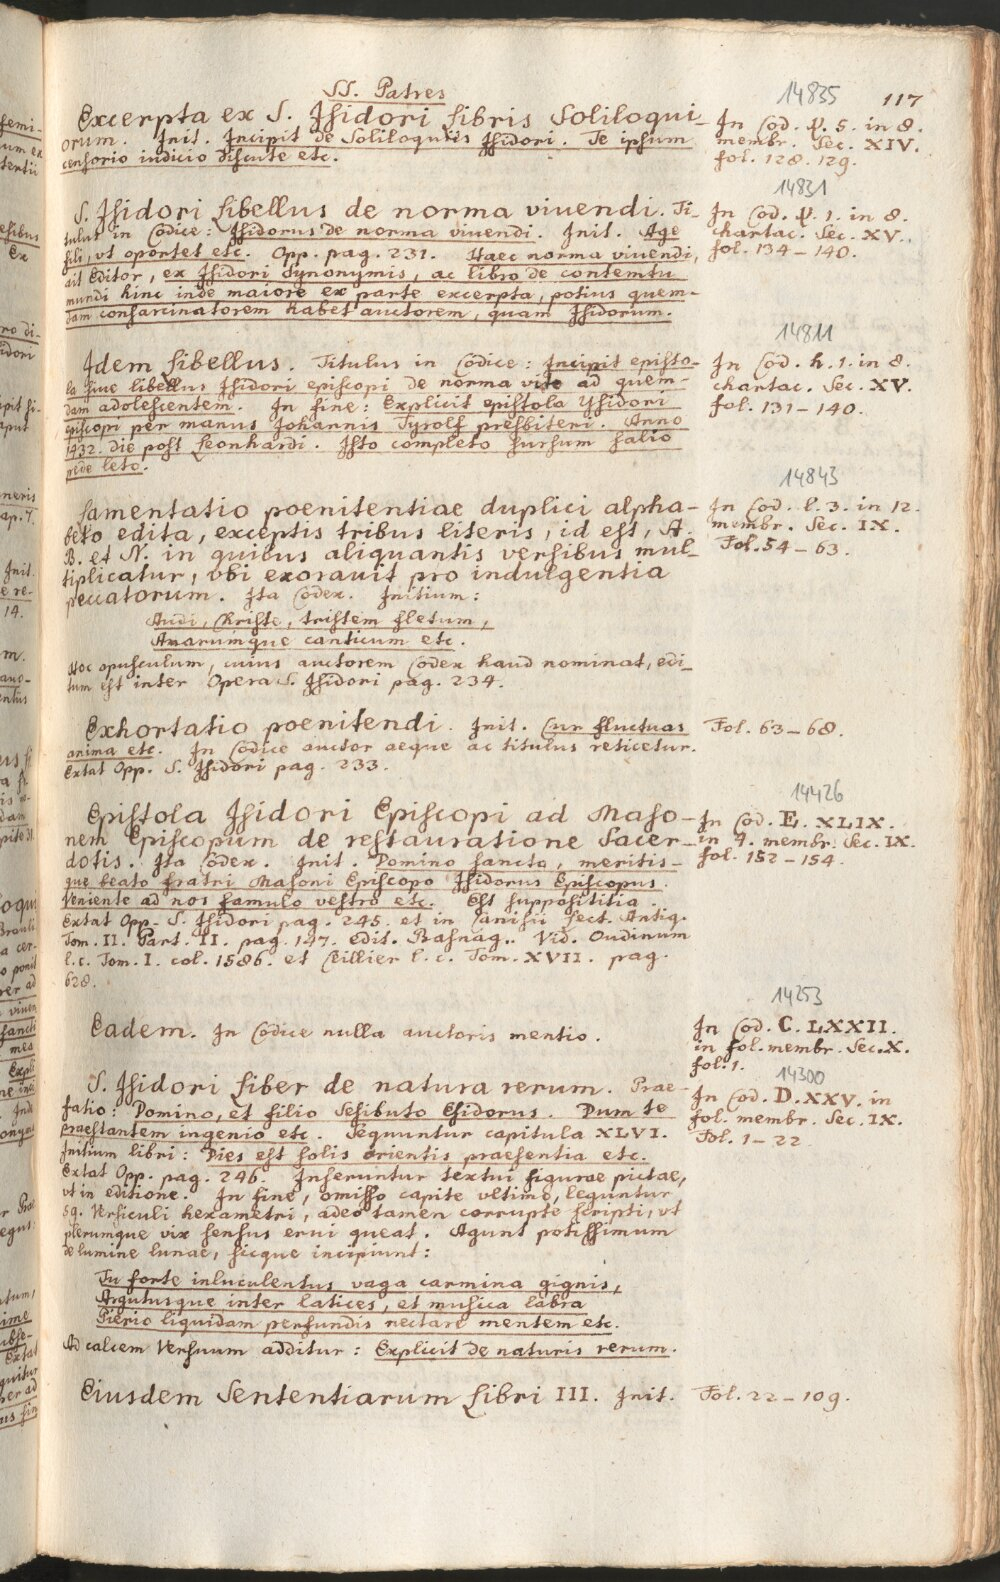 SS. Patres
14835 117
Excerpta ex S. Isidori Libris Soliloqui-
orum. Init. Incipit de Soliloquiis Isidori. Te ipsum
censorio iudicio discute etc.
In Cod. V. 5. in 8.
membr. Sec. XIV.
fol. 128. 129.
14831
S. Isidori Libellus de norma viuendi. Ti-
tulus in Codice: Isidorus de norma viuendi. Init. Age
fili, vt oportet etc. Opp. pag. 231. Haec norma viuendi,
ait Editor, ex Isidori Synonymis, ac libro de contemtu
mundi hinc inde maiore ex parte excerpta, potius quem-
dam consarcinatorem habet auctorem, quam Isidorum.
In Cod. V. 1. in 8.
chartac. Sec. XV.
fol. 134 – 140.
14811
Idem Libellus. Titulus in Codice: Incipit episto-
la siue libellus Isidori episcopi de norma vite ad quem-
dam adolescentem. In fine: Explicit epistola Ysidori
episcopi per manus Johannis Tyrolf presbiteri. Anno
1432. die post Leonhardi. Isto completo sursum salio
pede leto.
In Cod. h. 1. in 8.
chartac. Sec. XV.
fol. 131 – 140.
14843
Lamentatio poenitentiae duplici alpha-
beto edita, exceptis tribus literis, id est, A.
B. et N. in quibus aliquantis versibus mul-
tiplicatur, vbi exorauit pro indulgentia
peccatorum. Ita Codex. Initium:
Audi, Christe, tristem fletum,
Amarumque canticum etc.
Hoc opusculum, cuius auctorem Codex haud nominat, edi-
tum est inter Opera S. Isidori pag. 234.
In Cod. l. 3. in 12.
membr. Sec. IX.
Fol. 54 – 63.
Exhortatio poenitendi. Init. Cur fluctuas
anima etc. In Codice auctor aeque ac titulus reticetur.
Extat Opp. S. Isidori pag. 233.
Fol. 63 – 68.
14426
Epistola Isidori Episcopi ad Maso-
nem Episcopum de restauratione Sacer-
dotis. Ita Codex. Init. Domino sancto, meritis-
que beato fratri Masoni Episcopo Isidorus Episcopus.
Veniente ad nos famulo vestro etc. Est supposititia.
Extat Opp. S. Isidori pag. 245. et in Canisii Lect. Antiq.
Tom. II. Part. II. pag. 147. edit. Basnag.. Vid. Oudinum
l. c. Tom. I. col. 1586. et Ceillier l. c. Tom. XVII. pag.
628.
In Cod. E. XLIX.
in 4. membr. Sec. IX.
fol. 152 – 154.
14253
Eadem. In Codice nulla auctoris mentio.
In Cod. C. LXXII.
in fol. membr. Sec. X.
fol. 1.
14300
S. Isidori Liber de natura rerum. Prae-
fatio: Domino, et filio Sesibuto Esidorus. Dum te
praestantem ingenio etc. Sequuntur capitula XLVI.
Initium libri: Dies est solis orientis praesentia etc.
Extat Opp. pag. 246. Inseruntur textui figurae pictae,
vt in editione. In fine, omisso capite vltimo, leguntur
59. Versiculi hexametri, adeo tamen corrupte scripti, vt
plerumque vix sensus erui queat. Agunt potissimum
de lumine lunae, sicque incipiunt:
Tu forte inluculentus vaga carmina gignis,
Argutusque inter latices, et musica labra
Pierio liquidam perfundis nectare mentem etc.
Ad calcem Versuum additur: Explicit de naturis rerum.
In Cod. D. XXV. in
fol. membr. Sec. IX.
Fol. 1 – 22
Eiusdem Sententiarum Libri III. Init.
Fol. 22 – 109.